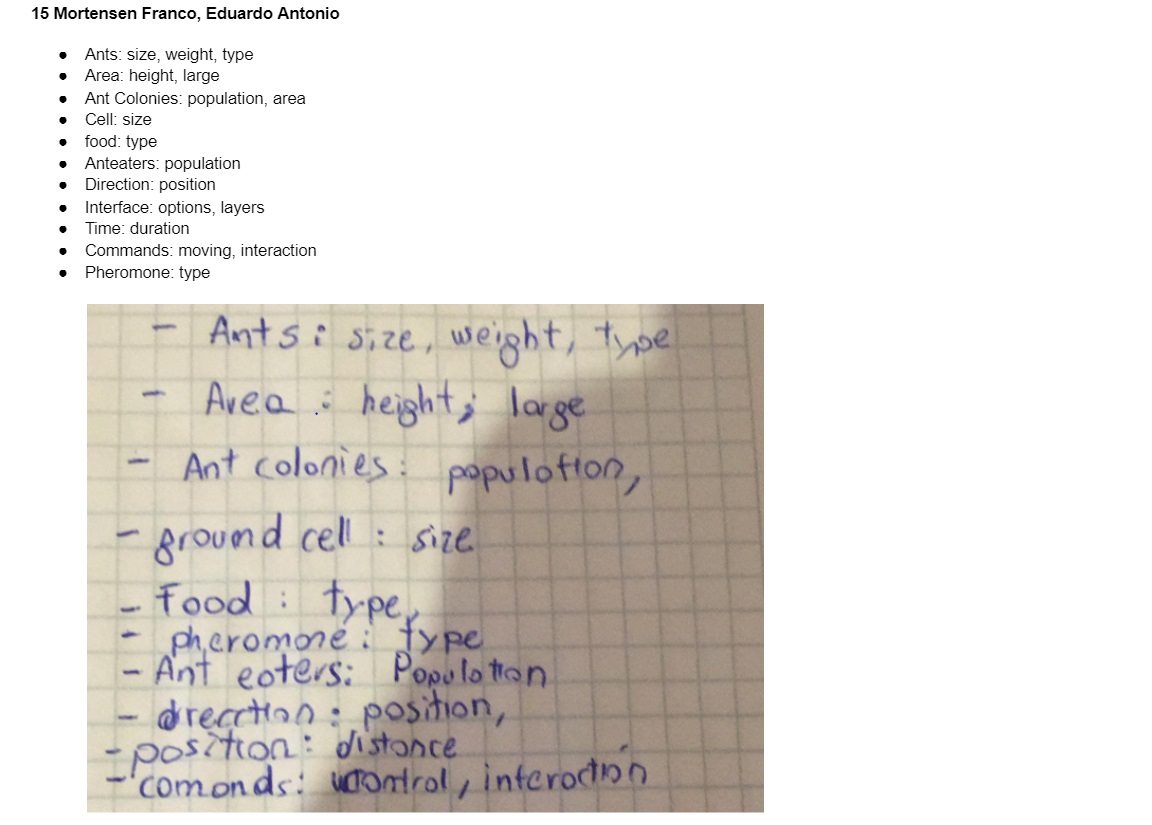 15 Mortensen Franco, Eduardo Antonio
● Ants: size, weight, type
● Area: height, large
● Ant Colonies: population, area
● Cell: size
● food: type
● Anteaters: population
● Direction: position
● Interface: options, layers
● Time: duration
● Commands: moving, interaction
● Pheromone: type
- Ants: size, weight, type
- Area: height; large
- Ant colonies: population,
- ground cell: size
- Food: type,
- pheromone: type
- Ant eaters: Population
- direction: position,
- position: distance
- comands: control, interaction